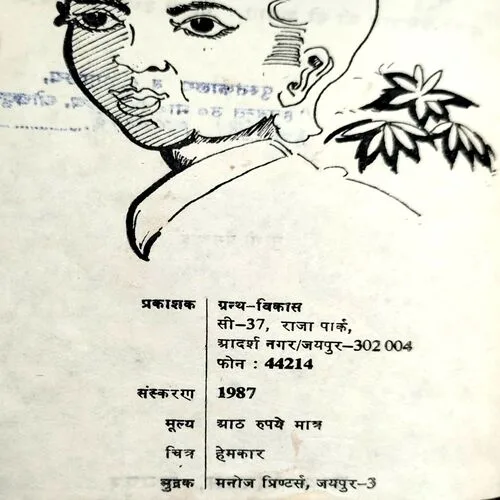 प्रकाशक ग्रन्थ-विकास
सी-37, राजा पार्क,
आदर्श नगर/जयपुर-302 004
फोन : 44214
संस्करण 1987
मूल्य आठ रुपये मात्र
चित्र हेमकार
मुद्रक मनोज प्रिण्टर्स, जयपुर-3